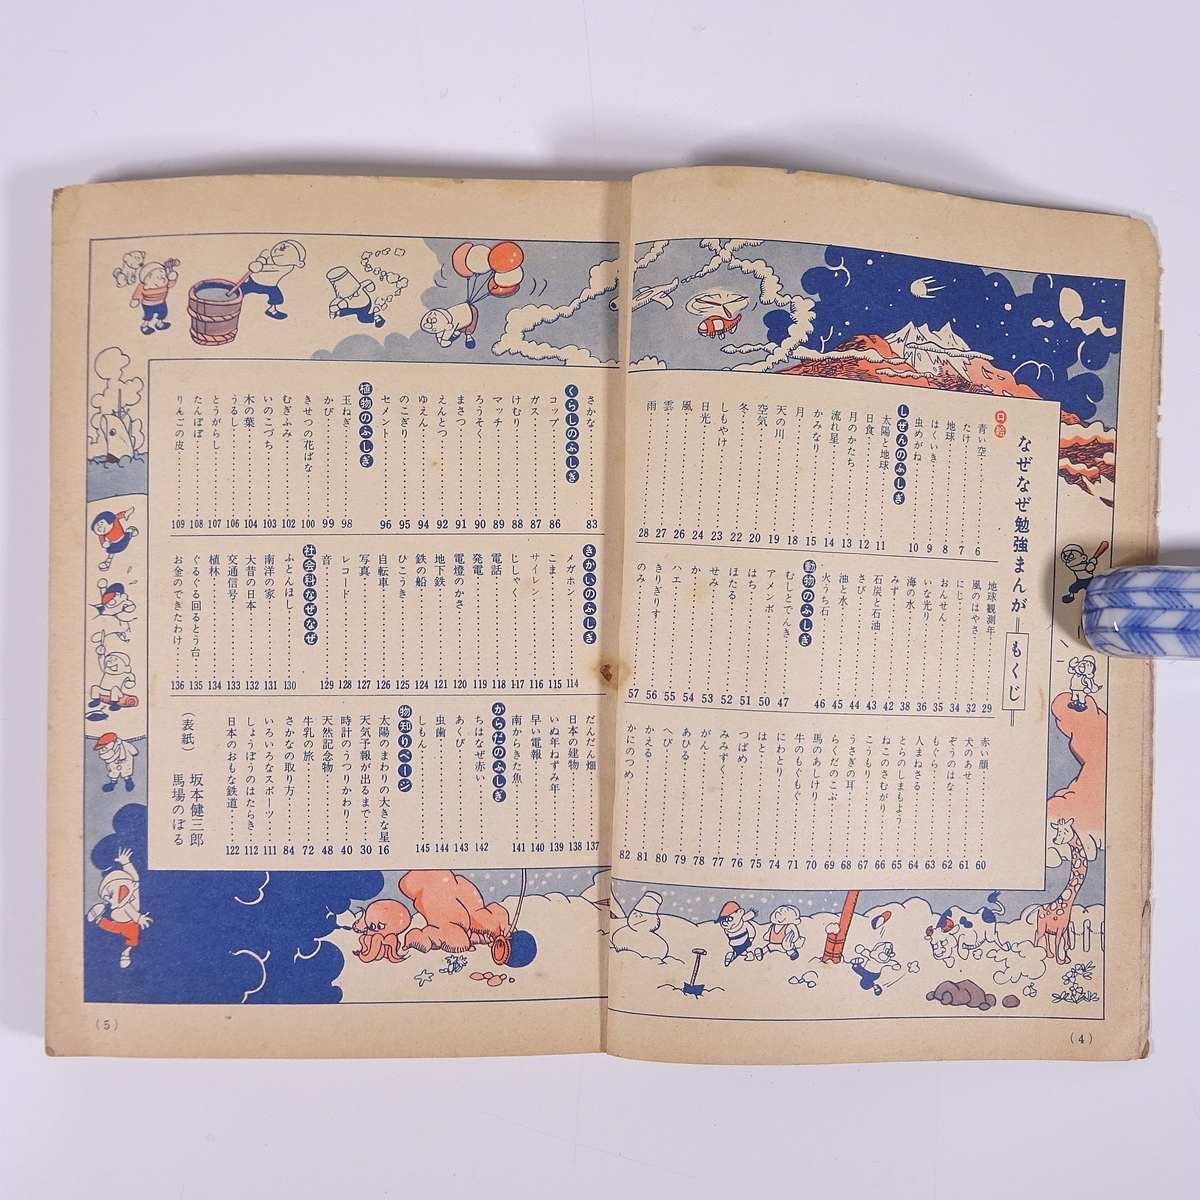 なぜなぜ勉強まんが=もくじ=
口絵
青い空 6
たけ 7
地球 8
はくいき 9
虫めがね 10
しぜんのふしぎ
太陽と地球 11
日食 12
月のかたち 13
流れ星 14
かみなり 15
月 18
天の川 19
空気 20
冬 22
しもやけ 23
日光 24
風 26
雲 27
雨 28
地球観測年 29
風のはやさ 32
にじ 34
おんせん 35
いな光り 36
海の水 38
みず 42
石炭と石油 43
さび 44
油と水 45
火うち石 46
動物のふしぎ
むしとでんき 47
アメンボ 50
はち 51
ほたる 52
せみ 53
か 54
ハエ 55
きりぎりす 56
のみ 57
赤い顔 60
犬のあせ 61
ぞうのはな 62
もぐら 63
人まねざる 64
とらのしまもよう 65
ねこのさむがり 66
こうもり 67
うさぎの耳 68
らくだのこぶ 69
馬のあしけり 70
牛のもぐもぐ 71
にわとり 74
はと 75
つばめ 76
みみずく 77
がん 78
あひる 79
へび 80
かえる 81
かにのつめ 82
(4)
さかな 83
くらしのふしぎ
コップ 86
ガス 87
けむり 88
マッチ 89
ろうそく 90
まさつ 91
えんとつ 92
ゆえん 94
のこぎり 95
セメント 96
植物のふしぎ
玉ねぎ 98
かび 99
きせつの花ばな 100
むぎふみ 102
いのこづち 103
木の葉 104
うるし 106
とうがらし 107
たんぽぽ 108
りんごの皮 109
きかいのふしぎ
メガホン 114
こま 115
サイレン 116
じしゃく 117
電話 118
発電 119
電燈のかさ 120
地下鉄 121
鉄の船 124
ひこうき 125
自転車 126
写真 127
レコード 128
音 129
社会科なぜなぜ
ふとんほし 130
南洋の家 131
大昔の日本 132
交通信号 133
植林 134
ぐるぐる回るとう台 135
お金のできたわけ 136
だんだん畑 137
日本の建物 138
いぬ年ねずみ年 139
早い電報 140
南からきた魚 141
からだのふしぎ
ちはなぜ赤い 142
あくび 143
虫歯 144
しもん 145
物知りページ
太陽のまわりの大きな星 16
天気予報が出るまで 30
時計のうつりかわり 40
天然記念物 48
牛乳の旅 72
さかなの取り方 84
いろいろなスポーツ 111
しょうぼうのはたらき 112
日本のおもな鉄道 122
(表紙) 坂本健三郎
馬場のぼる
(5)